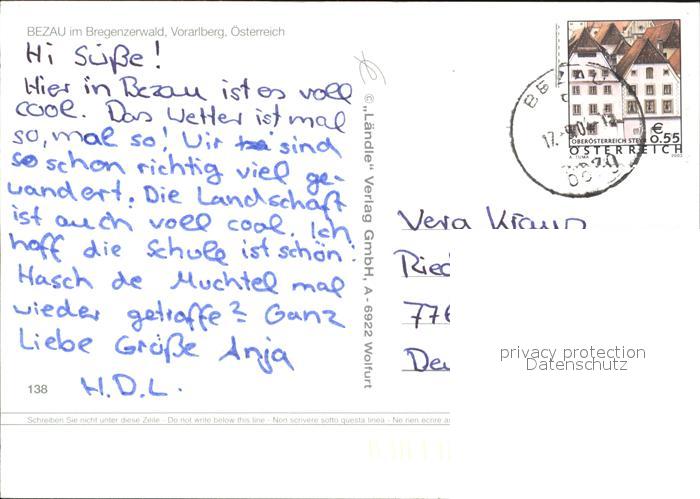 BEZAU im Bregenzerwald, Vorarlberg, Österreich
Hi Süße!
Hier in Bezau ist es voll
cool. Das Wetter ist mal
so, mal so! Wir sind
so schon richtig viel ge-
wandert. Die Landschaft
ist auch voll cool. Ich
hoff die Schule ist schön!
Hasch de Muchtel mal
wieder getroffe? Ganz
Liebe Grüße Anja
H.D.L.
138
Schreiben Sie nicht unter diese Zeile - Do not write below this line - Non scrivere sotto questa linea - Ne rien ecrire a
© „Ländle" Verlag GmbH, A - 6922 Wolfurt
€
0.55
OBERÖSTERREICH STEY
ÖSTERREICH
A. TUMA
2002
BEZAU
Vera Kraus
Ried
776
De
privacy protection
Datenschutz